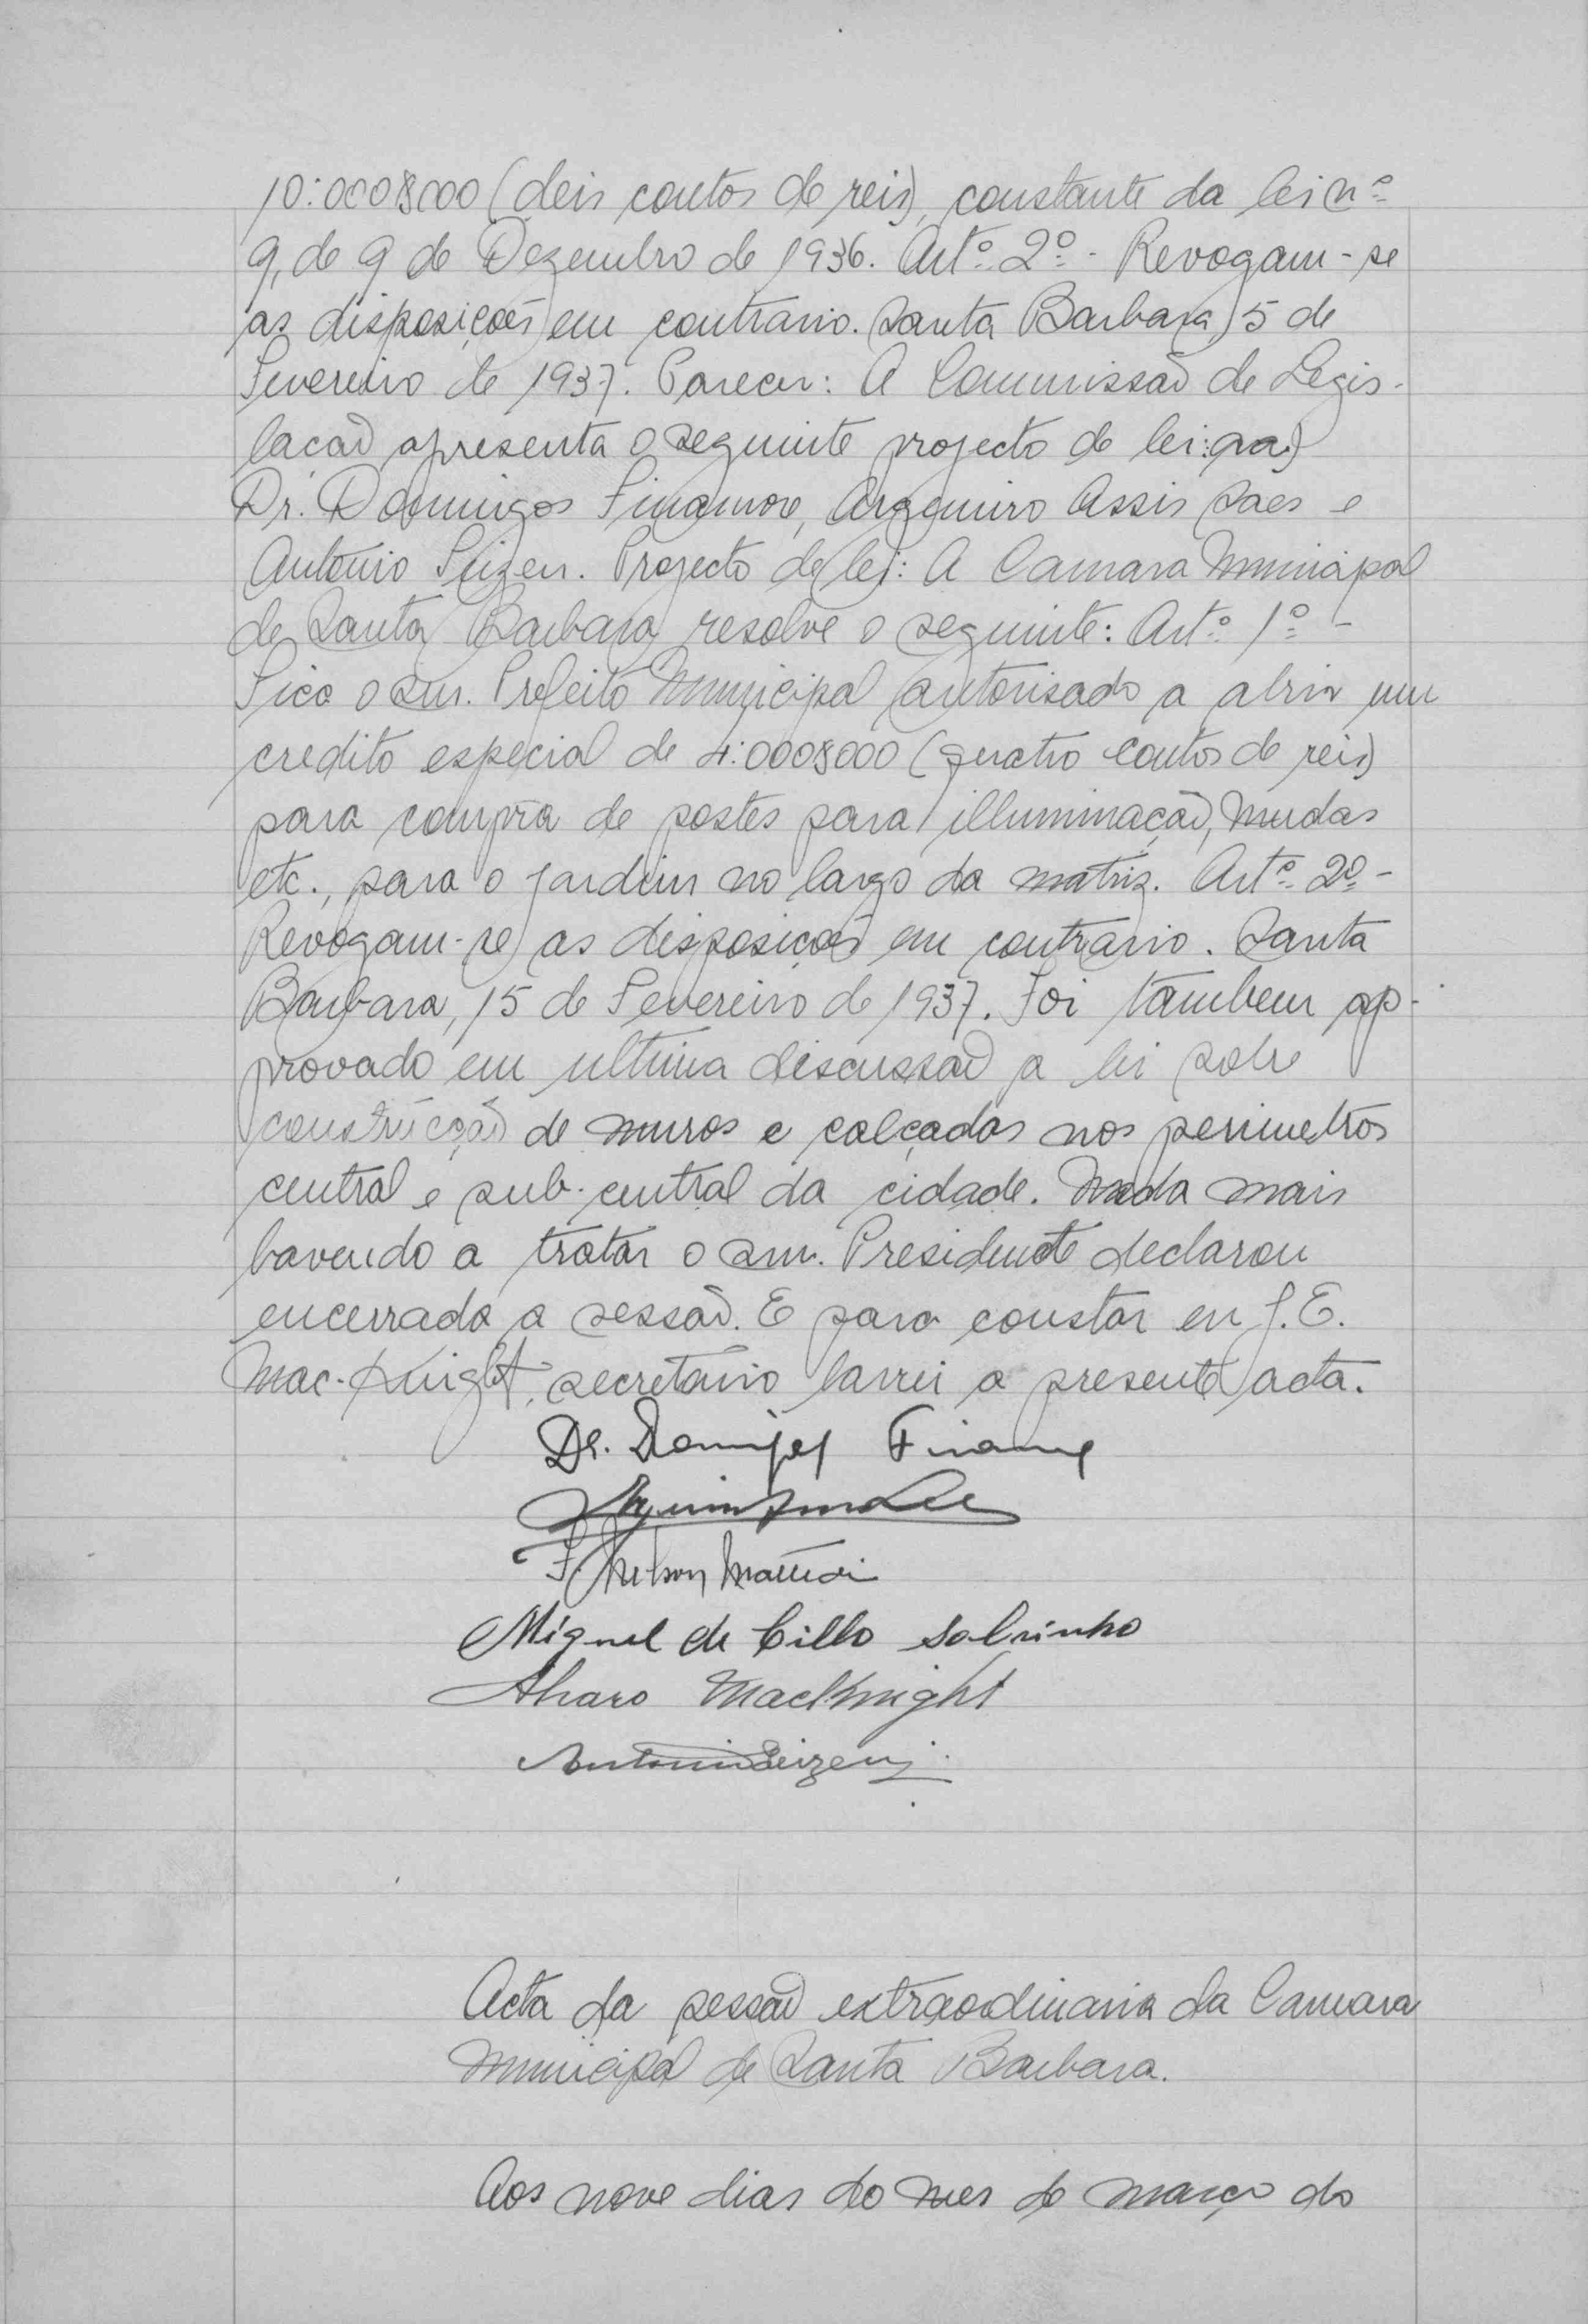 10:000$000 (deis contos de reis), constante da lei nº
9, de 9 de Dezembro de 1936. Artº 2º - Revogam-se
as disposições em contrario. Santa Barbara, 5 de
Fevereiro de 1937. Parecer: A Commissão de Legis-
lacão apresenta o seguinte projecto de lei: (aa)
Dr. Domingos Finamore, Argemiro Assis Saes e
Antonio Seizen. Projecto de lei: A Camara Municipal
de Santa Barbara resolve o seguinte: Artº 1º -
Fica o snr. Prefeito Municipal autorisado a abrir um
credito especial de 4:000$000 (quatro contos de reis)
para compra de postes para illuminação, mudas
etc., para o jardim no largo da matriz. Artº 2º -
Revogam-se as disposições em contrario. Santa
Barbara, 15 de Fevereiro de 1937. Foi tambem ap-
provado em ultima discussão a lei sobre
construcção de muros e calçadas nos perimetros
central e sub-central da cidade. Nada mais
havendo a tratar o snr. Presidente declarou
encerrada a sessão. E para constar eu J. E.
Mac-Knight, secretario lavrei a presente acta.
Dr. Domingos Finamore
F Nelson
Miguel de Cillo Sobrinho
Alvaro MacKnight
Antonio Seizen
Acta da sessão extraordinaria da Camara
Municipal de Santa Barbara.
Aos nove dias do mes de março do